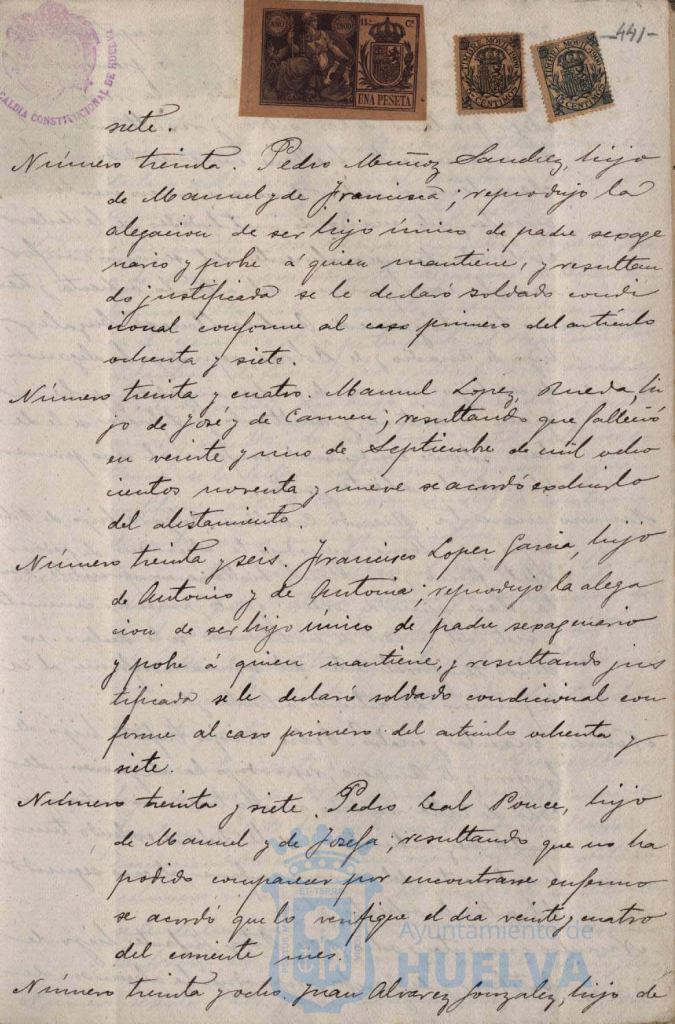 -441-
AÑO 1900
11.ª Cª
UNA PESETA
ALCALDIA CONSTITUCIONAL DE HUELVA
siete.
Número treinta. Pedro Muñoz Sanchez, hijo
de Manuel y de Francisca; reprodujo la
alegacion de ser hijo único de padre sexage
nario y pobre á quien mantiene, y resultan
do justificada se le declaró soldado condi
cional conforme al caso primero del artículo
ochenta y siete.
Número treinta y cuatro. Manuel Lopez Rueda, hi
jo de José y de Carmen; resultando que falleció
en veinte y uno de Septiembre de mil ocho
cientos noventa y nueve se acordó excluirlo
del alistamiento.
Número treinta y seis. Francisco Lopez Garcia, hijo
de Antonio y de Antonia; reprodujo la alega
cion de ser hijo único de padre sexagenario
y pobre á quien mantiene, y resultando jus
tificada se le declaró soldado condicional con
forme al caso primero del artículo ochenta y
siete.
Número treinta y siete. Pedro Leal Ponce, hijo
de Manuel y de Josefa; resultando que no ha
podido comparecer por encontrarse enfermo
se acordó que lo verifique el dia veinte y cuatro
del corriente mes.
Número treinta y ocho. Juan Alvarez Gonzalez, hijo de
Ayuntamiento de
HUELVA